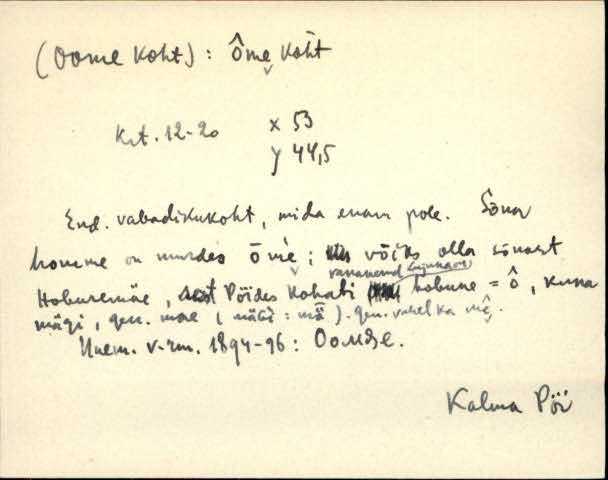 (Oome koht) : ô̬me koht
Krt. 12-20 x 53
y 44,5
End. vabadikukoht, mida enam pole. Sõna
homme on murdes ōmè ; võiks olla sõnast
vananend
Hobusemäe, sest Pöides kohati hobune = ô, kuna
mägi, gen. mäe (mäGì : mä̂). gen. vahel ka mê.
Unem. v-rm. 1894-96 : Оомдзе.
Kalma Pöi